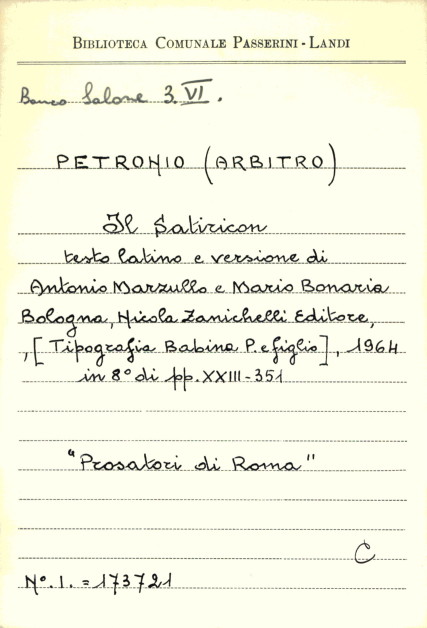 BIBLIOTECA COMUNALE PASSERINI - LANDI
Banco Salone 3.VI.
PETRONIO (ARBITRO)
Il Satiricon
testo latino e versione di
Antonio Marzullo e Mario Bonaria
Bologna, Nicola Zanichelli Editore,
, [Tipografia Babina P. e figlio], 1964
in 8° di pp. XXIII-351
"Prosatori di Roma"
C
N°. I. = 173721